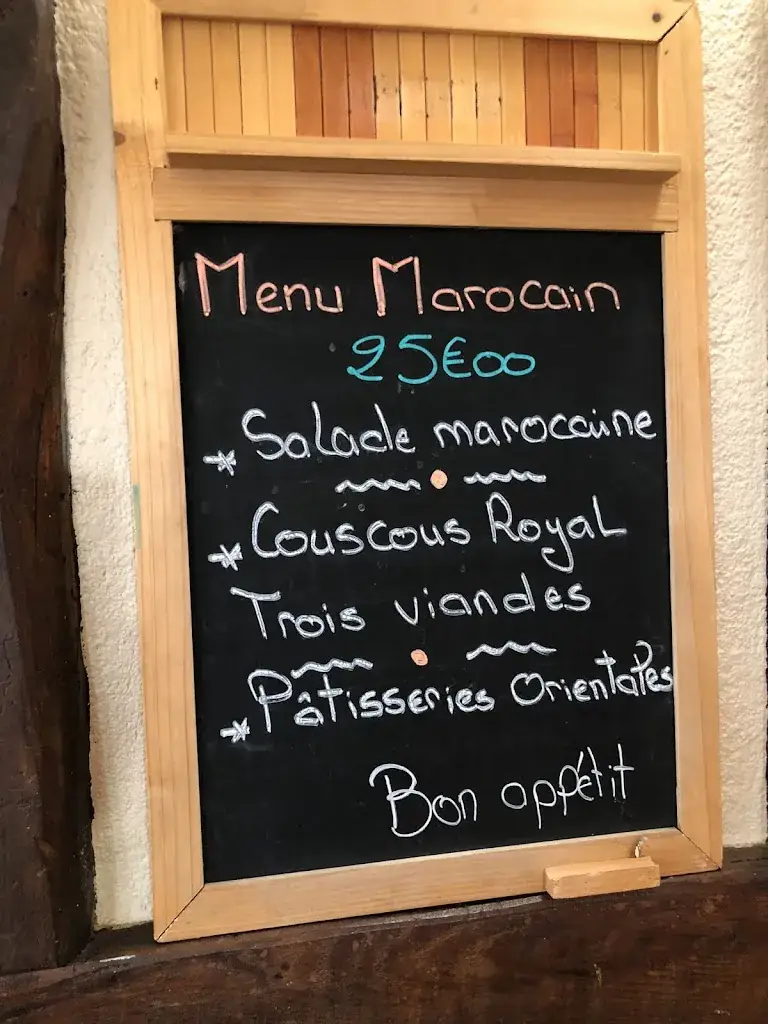 Menu Marocain
25€00
* Salade marocaine
* Couscous Royal
Trois viandes
* Pâtisseries Orientales
Bon appétit